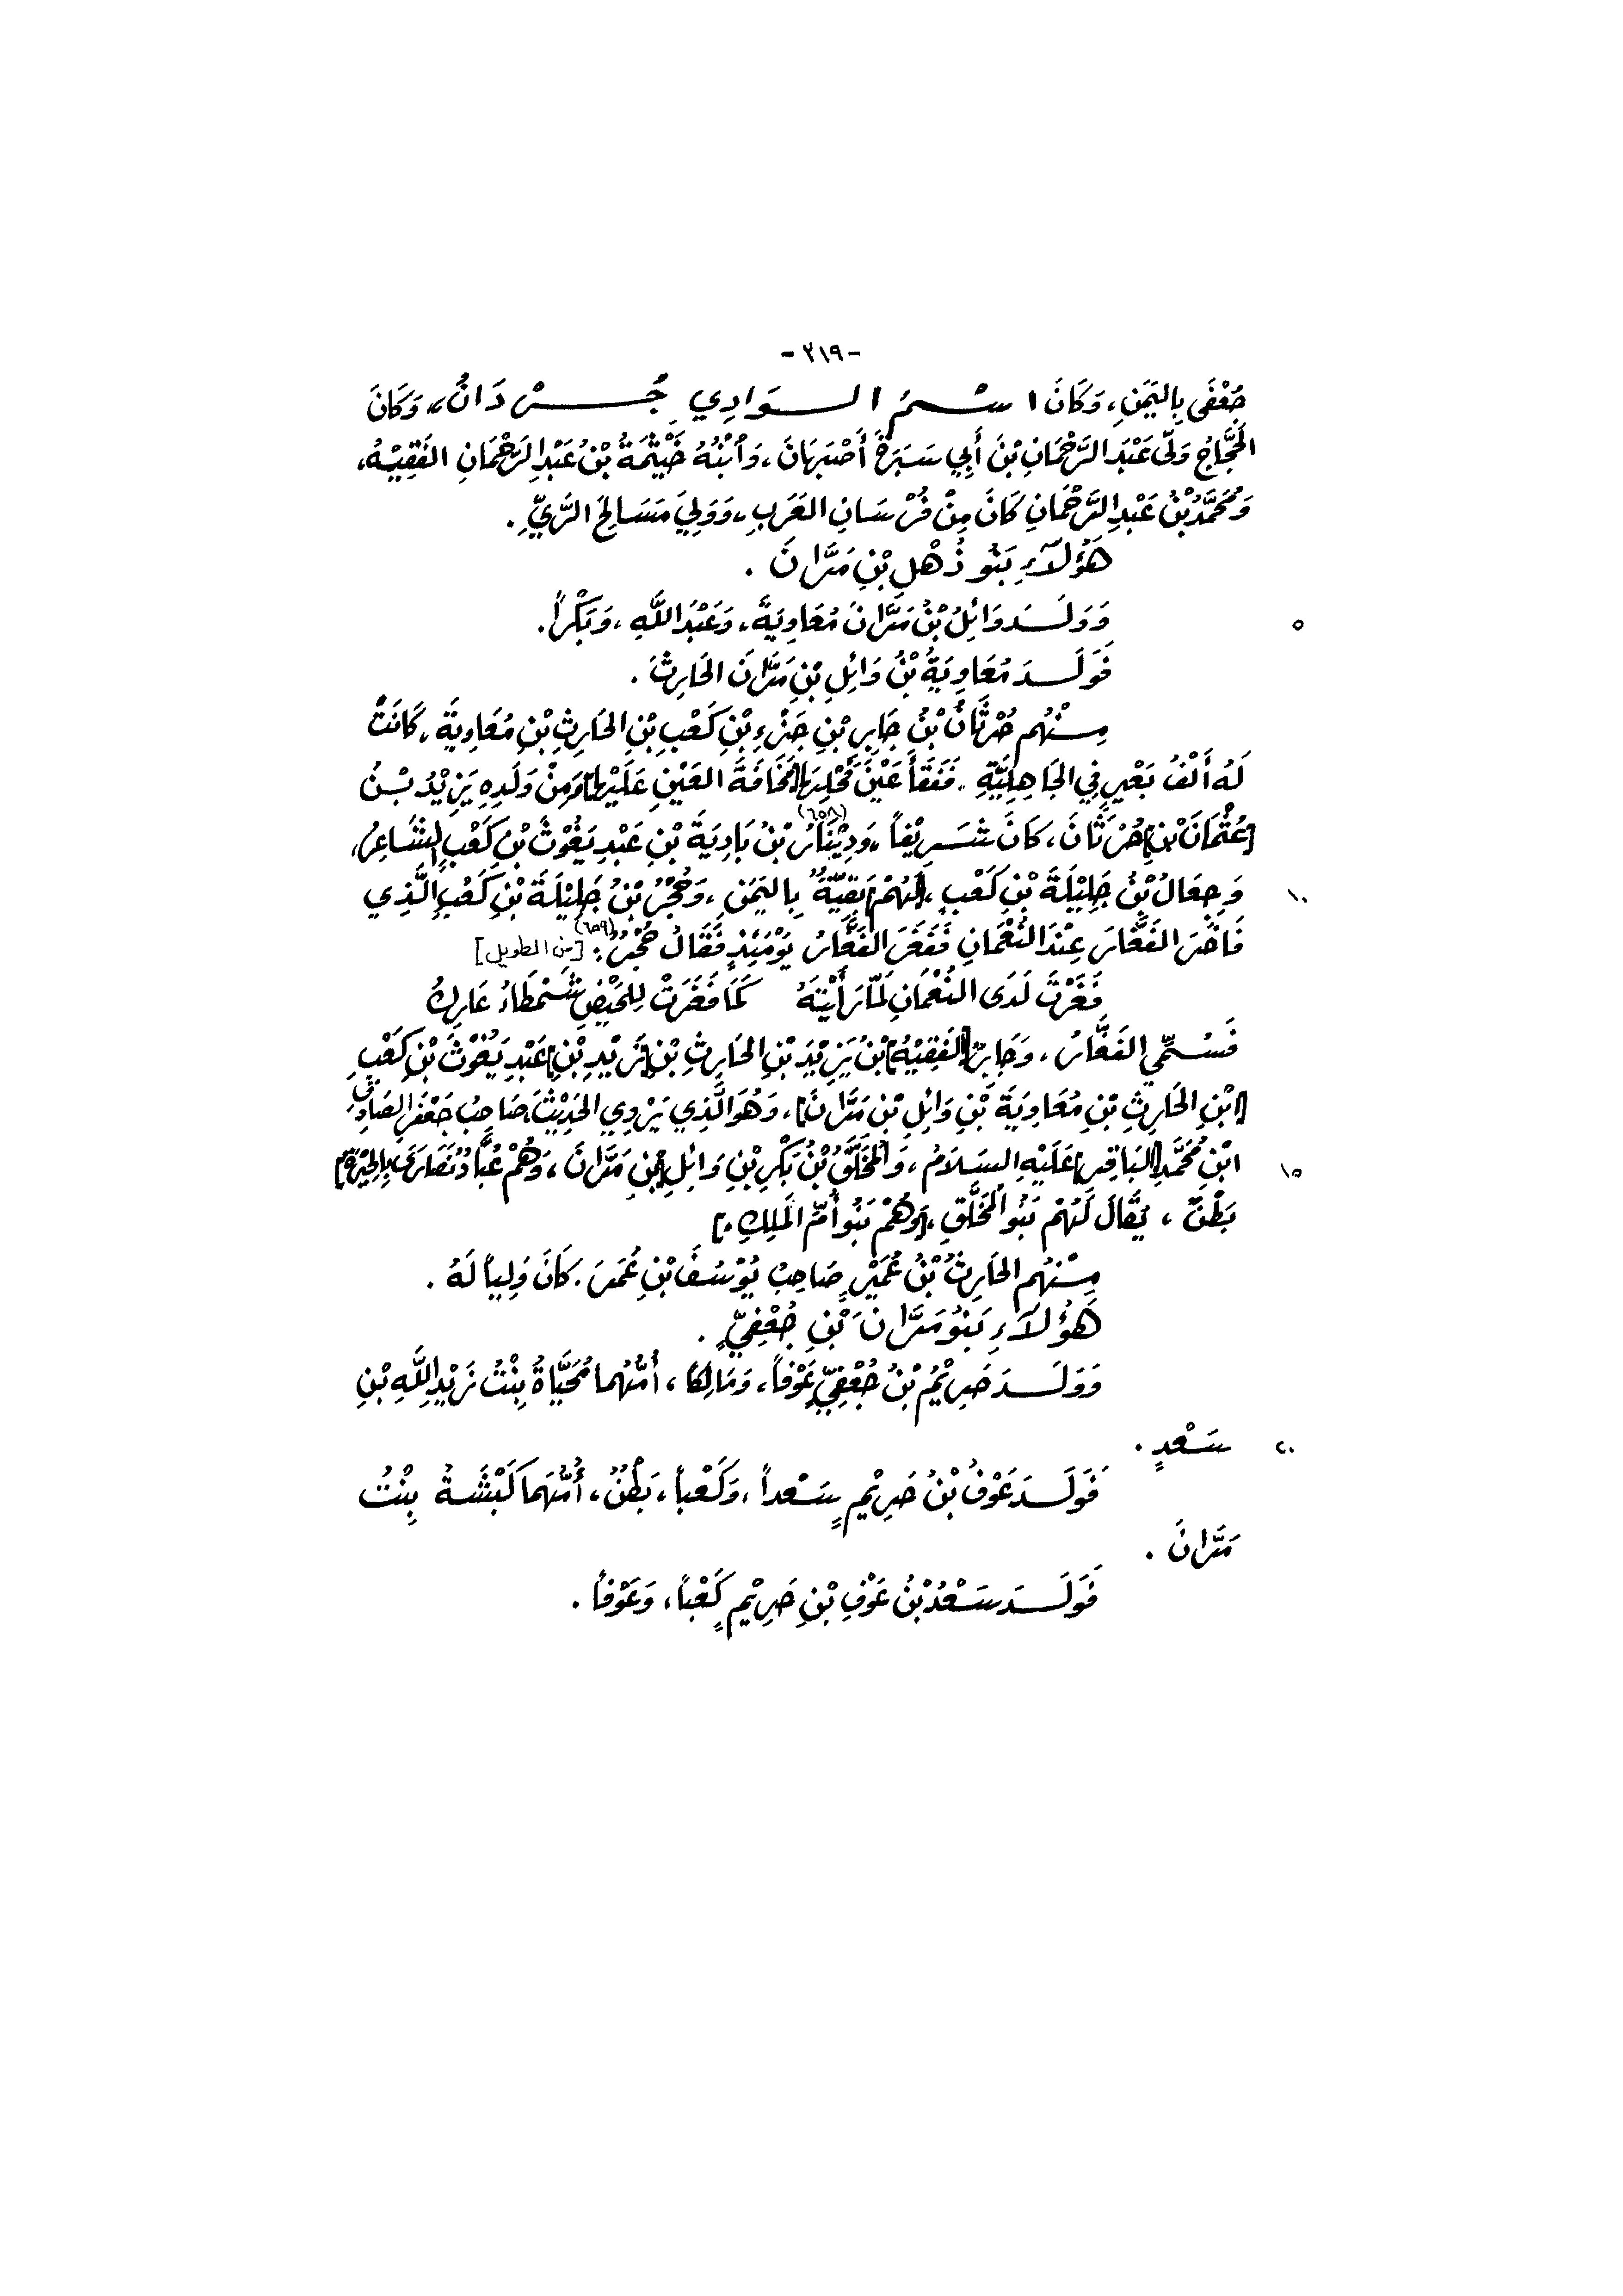 -٣١٩-
جُعْفَى بِاليَمَنِ، وَكَانَ اسْمُ الوَادِي جُرْدَانُ، وَكَانَ
الحَجَّاجُ وَلَّى عَبْدَ الرَّحْمَانِ بْنَ أَبِي سَبَرَةَ أَصْبَهَانَ، وَٱبْنُهُ خَيْثَمَةُ بْنُ عَبْدِ الرَّحْمَانِ الفَقِيْهُ،
وَمُحَمَّدُ بْنُ عَبْدِ الرَّحْمَانِ كَانَ مِنْ فُرْسَانِ العَرَبِ، وَوَلِيَ مَسَالِحَ الرَّيِّ.
هَؤُلَاءِ بَنُو ذُهْلِ بْنِ مَرَّانَ.
وَوَلَدَ وَائِلُ بْنُ مَرَّانَ مُعَاوِيَةَ، وَعَبْدَ اللَّهِ، وَبَكْراً. ٥
فَوَلَدَ مُعَاوِيَةُ بْنُ وَائِلِ بْنِ مَرَّانَ الحَارِثَ.
مِنْهُم حُرْثَانُ بْنُ جَابِرِ بْنِ جَزْءِ بْنِ كَعْبِ بْنِ الحَارِثِ بْنِ مُعَاوِيَةَ، كَانَتْ
لَهُ أَلْفُ بَعِيرٍ فِي الجَاهِلِيَّةِ، فَفَقَأَ عَيْنَ فَحْلِهَا [مَخَافَةَ العَيْنِ عَلَيْهَا] وَمِنْ وَلَدِهِ يَزِيْدُ بْنُ
[عُثْمَانَ بْنِ] حُرْثَانَ، كَانَ شَرِيْفاً، وَدِيْنَارُ (٦٥٨) بْنُ بَادِيَةَ بْنِ عَبْدِ يَغُوْثَ بْنِ كَعْبٍ الشَّاعِرُ،
وَجِعَالُ بْنُ جَلِيْلَةَ بْنِ كَعْبٍ، [لَهُمْ] بَقِيَّةٌ بِاليَمَنِ، وَحُجْرُ بْنُ جَلِيْلَةَ بْنِ كَعْبٍ الَّذِي ١٠
فَاخَرَ الفَغَّارَ عِنْدَ النُّعْمَانِ فَفَغَرَ الفَغَّارُ يَوْمَئِذٍ فَقَالَ حُجْرٌ (٦٥٩): [من الطويل]
فَغَرْتَ لَدَى النُّعْمَانِ لَمَّا رَأَيْتَهُ كَمَا فَغَرَتْ لِلحَيْضِ شَمْطَاءُ عَارِكُ
فَسُمِّي الفَغَّارُ، وَجَابِرٌ [الفَقِيْهُ] بْنُ يَزِيْدَ بْنِ الحَارِثِ بْنِ [زَيْدِ بْنِ] عَبْدِ يَغُوْثَ بْنِ كَعْبِ
[ابْنِ الحَارِثِ بْنِ مُعَاوِيَةَ بْنِ وَائِلِ بْنِ مَرَّانَ]، وَهُوَ الَّذِي يَرْوِي الحَدِيْثَ، صَاحِبُ جَعْفَرٍ الصَادِقِ
ابْنِ مُحَمَّدٍ [البَاقِرِ] عَلَيْهِ السَلَامُ، وَالمُخَلَّقُ بْنُ بَكْرِ بْنِ وَائِلِ [بْنِ مَرَّانَ، وَهُمْ عُبَّادٌ نَصَارَى بِالحِيْرَةِ] ١٥
بَطْنٌ، يُقَالُ لَهُمْ بَنُو المُخَلَّقِ، [وَهُمْ بَنُو أُمِّ المَلِكِ.]
مِنْهُم الحَارِثُ بْنُ عُمَيْرٍ صَاحِبُ يُوْسُفَ بْنِ عُمَرَ. كَانَ وَلِياً لَهُ.
هَؤُلَاءِ بَنُو مَرَّانَ بْنِ جُعْفِيٍّ.
وَوَلَدَ حَرِيْمُ بْنُ جُعْفِيٍّ عَوْفاً، وَمَالِكاً، أُمُّهُما مُحَيَّاةُ بِنْتُ زَيْدِ اللَّهِ بْنِ
سَعْدٍ. ٢٠
فَوَلَدَ عَوْفُ بْنُ حَرِيْمٍ سَعْداً، وَكَعْباً، بَطْنٌ، أُمُّهُمَا كَبْشَةُ بِنْتُ
مَرَّانَ.
فَوَلَدَ سَعْدُ بْنُ عَوْفِ بْنِ حَرِيْمٍ كَعْباً، وَعَوْفاً.